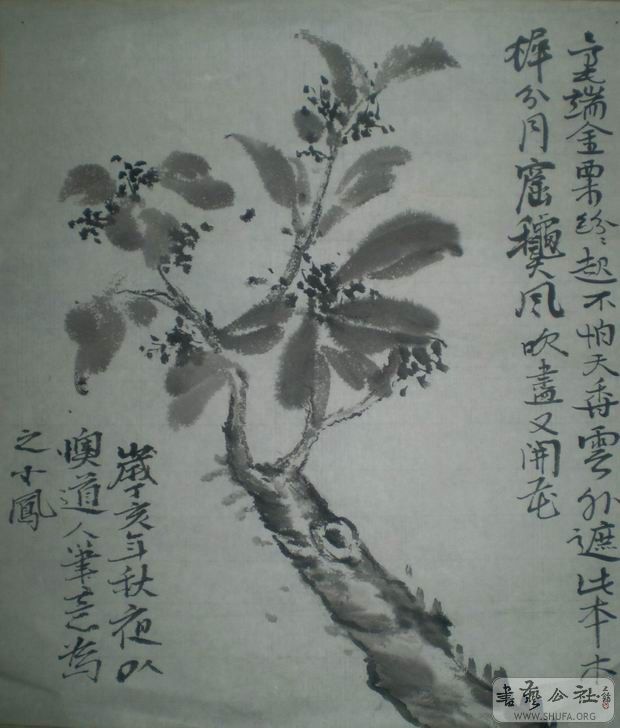 毫端金粟紛〻起不怕天香雲外遮此本木
樨分月窟龝風吹盡又開花
歲丁亥年秋夜以
懊道人筆意為
之小鳳
書藝公社
WWW.SHUFA.ORG